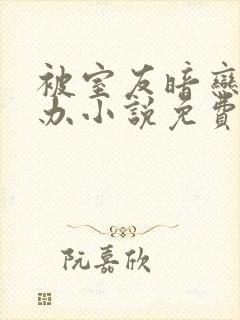 被室友暗戀
办小說免費
阮嘉欣